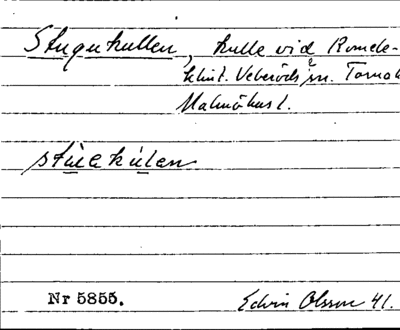 Stugukullen, kulle vid Romele-
klint. Veberöds sn. Torna h
Malmöhus l.
stùekùlen
Nr 5855.
Edvin Olsson 41.